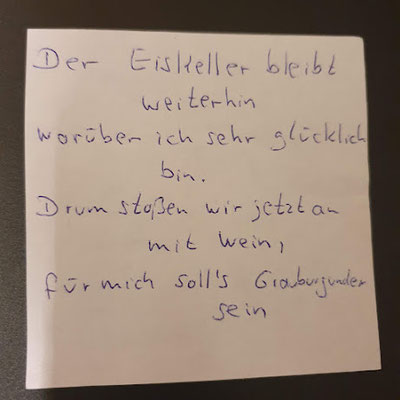 Der Eiskeller bleibt
weiterhin
worüber ich sehr glücklich
bin.
Drum stoßen wir jetzt an
mit Wein,
für mich soll's Grauburgunder
sein